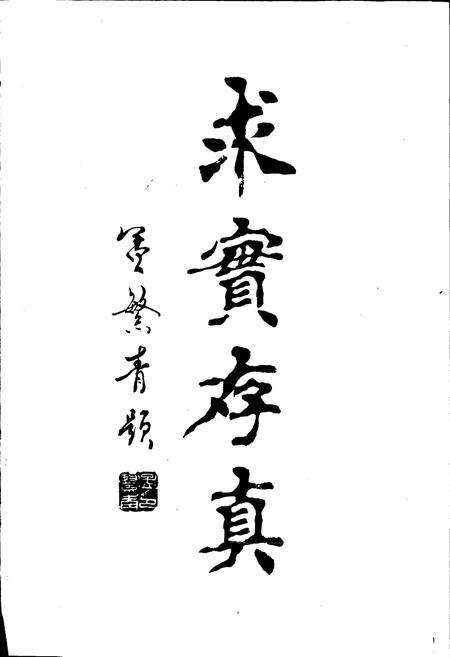 求實存真
繁青題